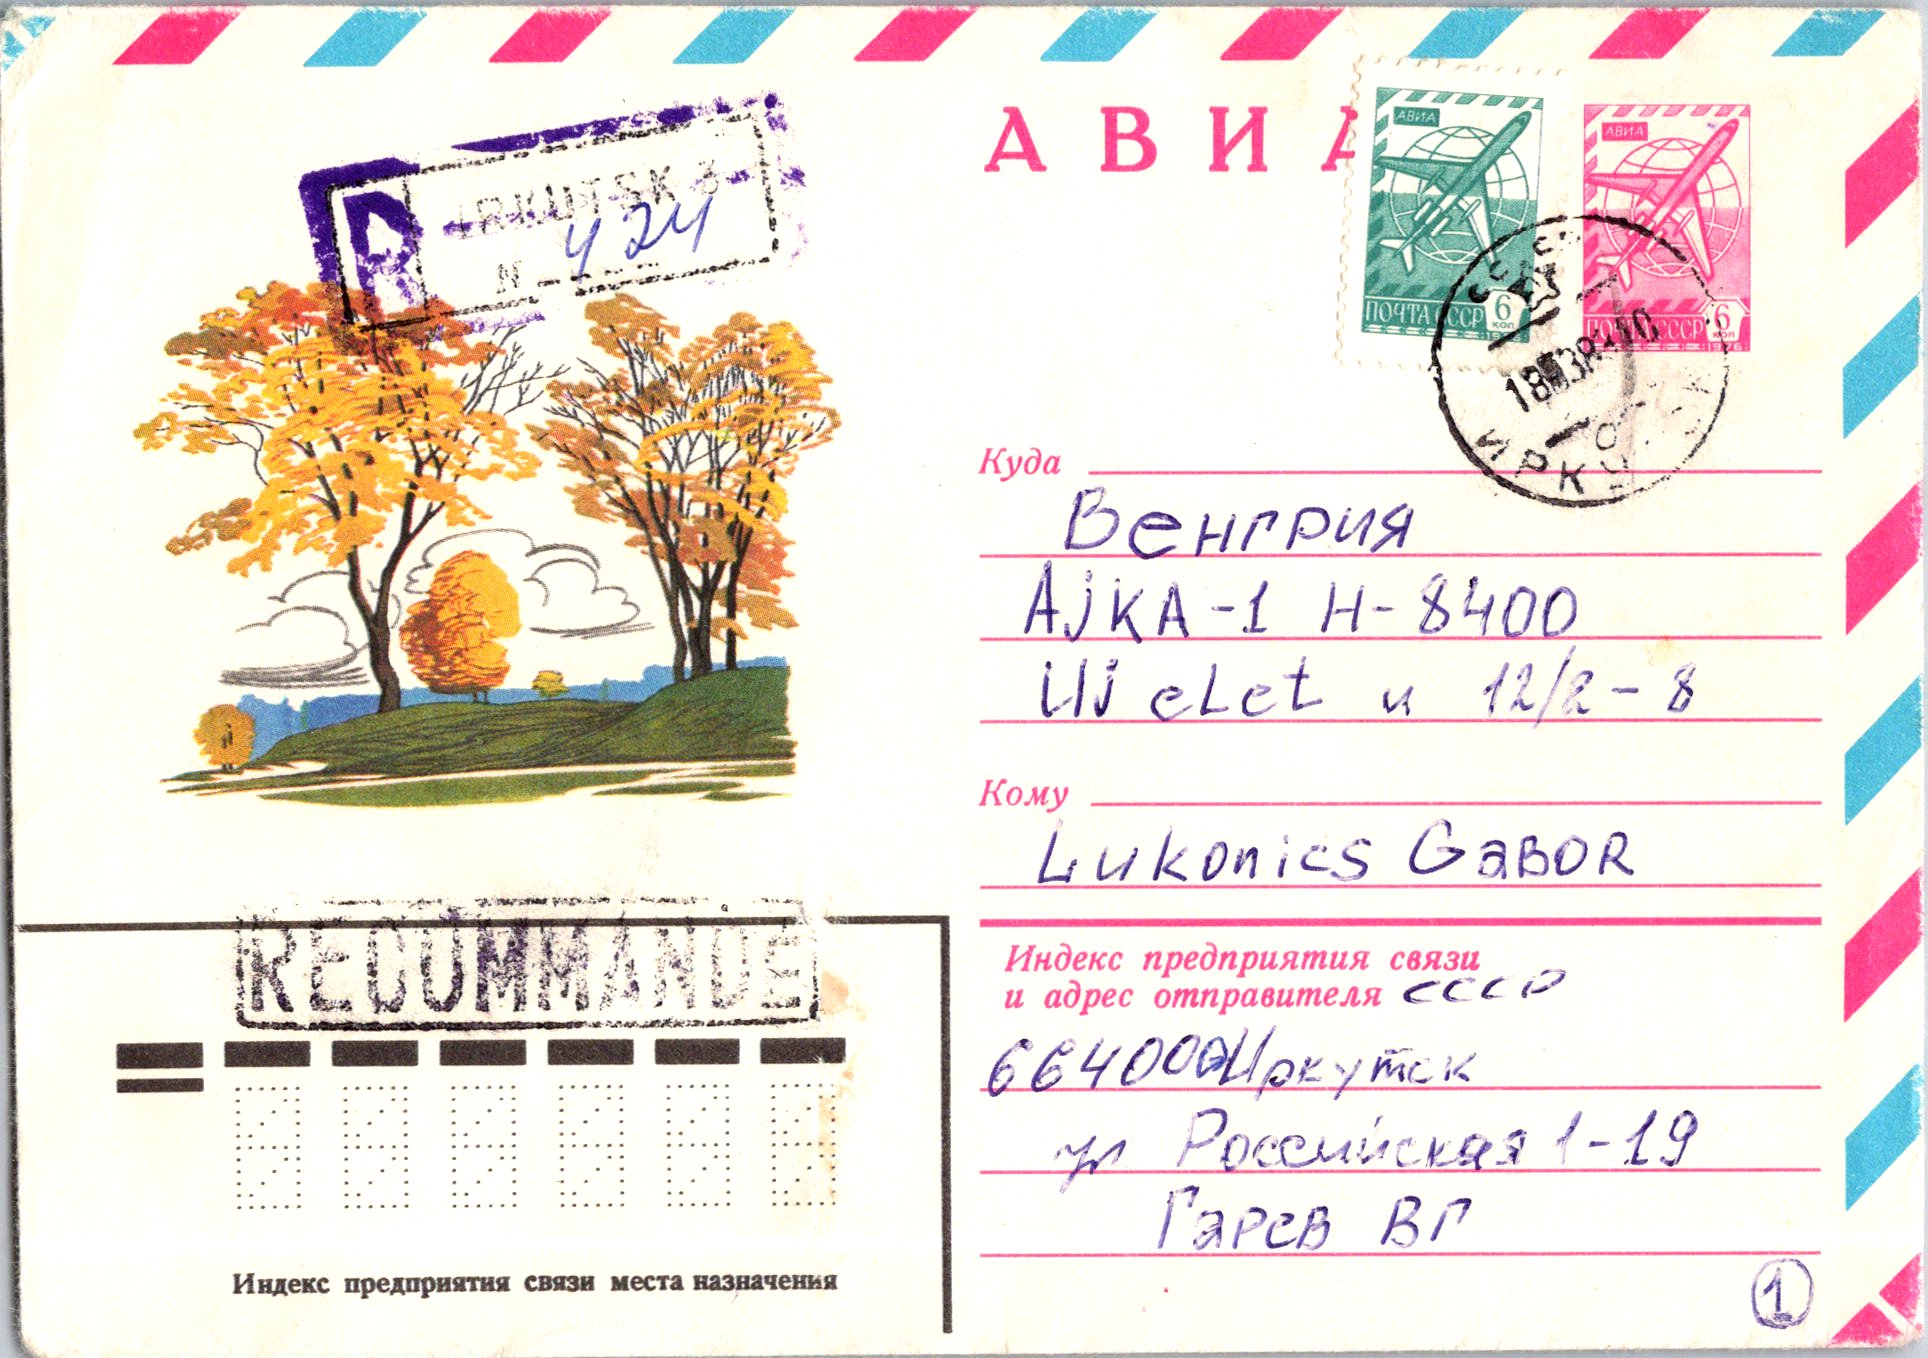 АВИА
АВИА
ПОЧТА СССР 6 КОП
1976
АВИА
ПОЧТА СССР 6 КОП
1976
R IRKUTSK 3
N 424
СССР
ИРКУТСК
Куда
Венгрия
AjKA-1 H-8400
Uj eLet u 12/2-8
Кому
Lukonics GaBOR
RECOMMANDÉ
Индекс предприятия связи
и адрес отправителя СССР
664000 Иркутск
ул Российская 1-19
Гарев ВГ
Индекс предприятия связи места назначения
1